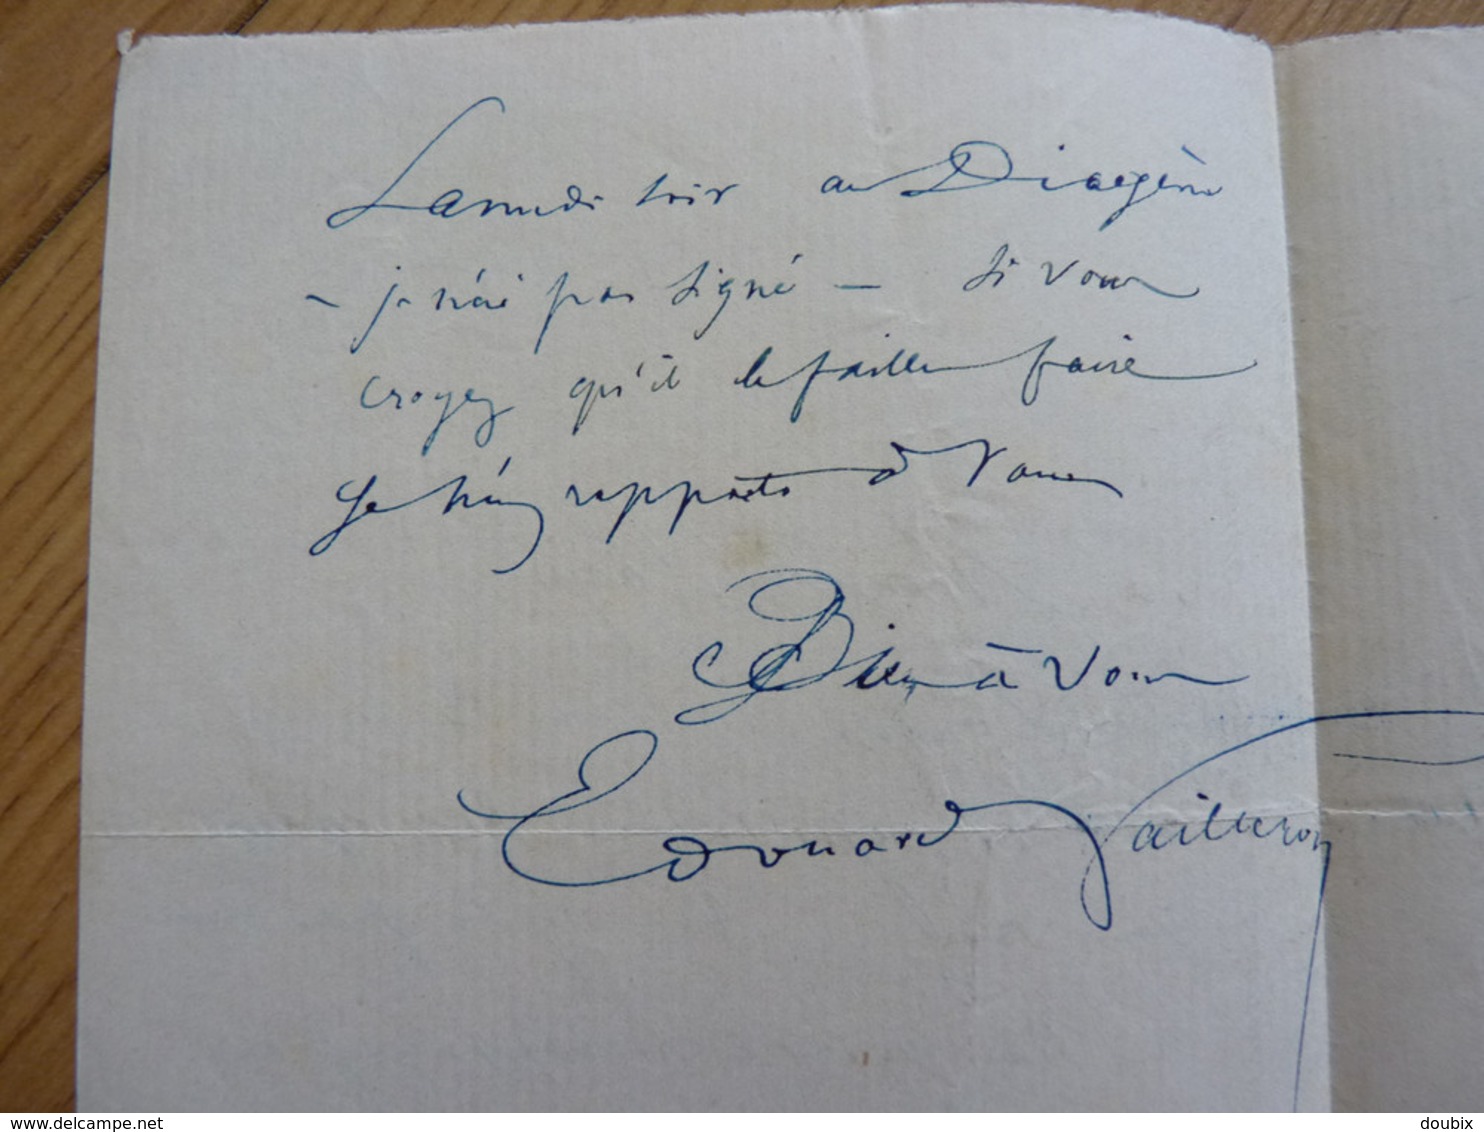 Samedi soir au Diogène
- je n'ai pas signé - si vous
croyez qu'il le faille faire
Je m'en rapporte à vous
Bien à vous
Edouard Pailleron
delcampe.net
doubix